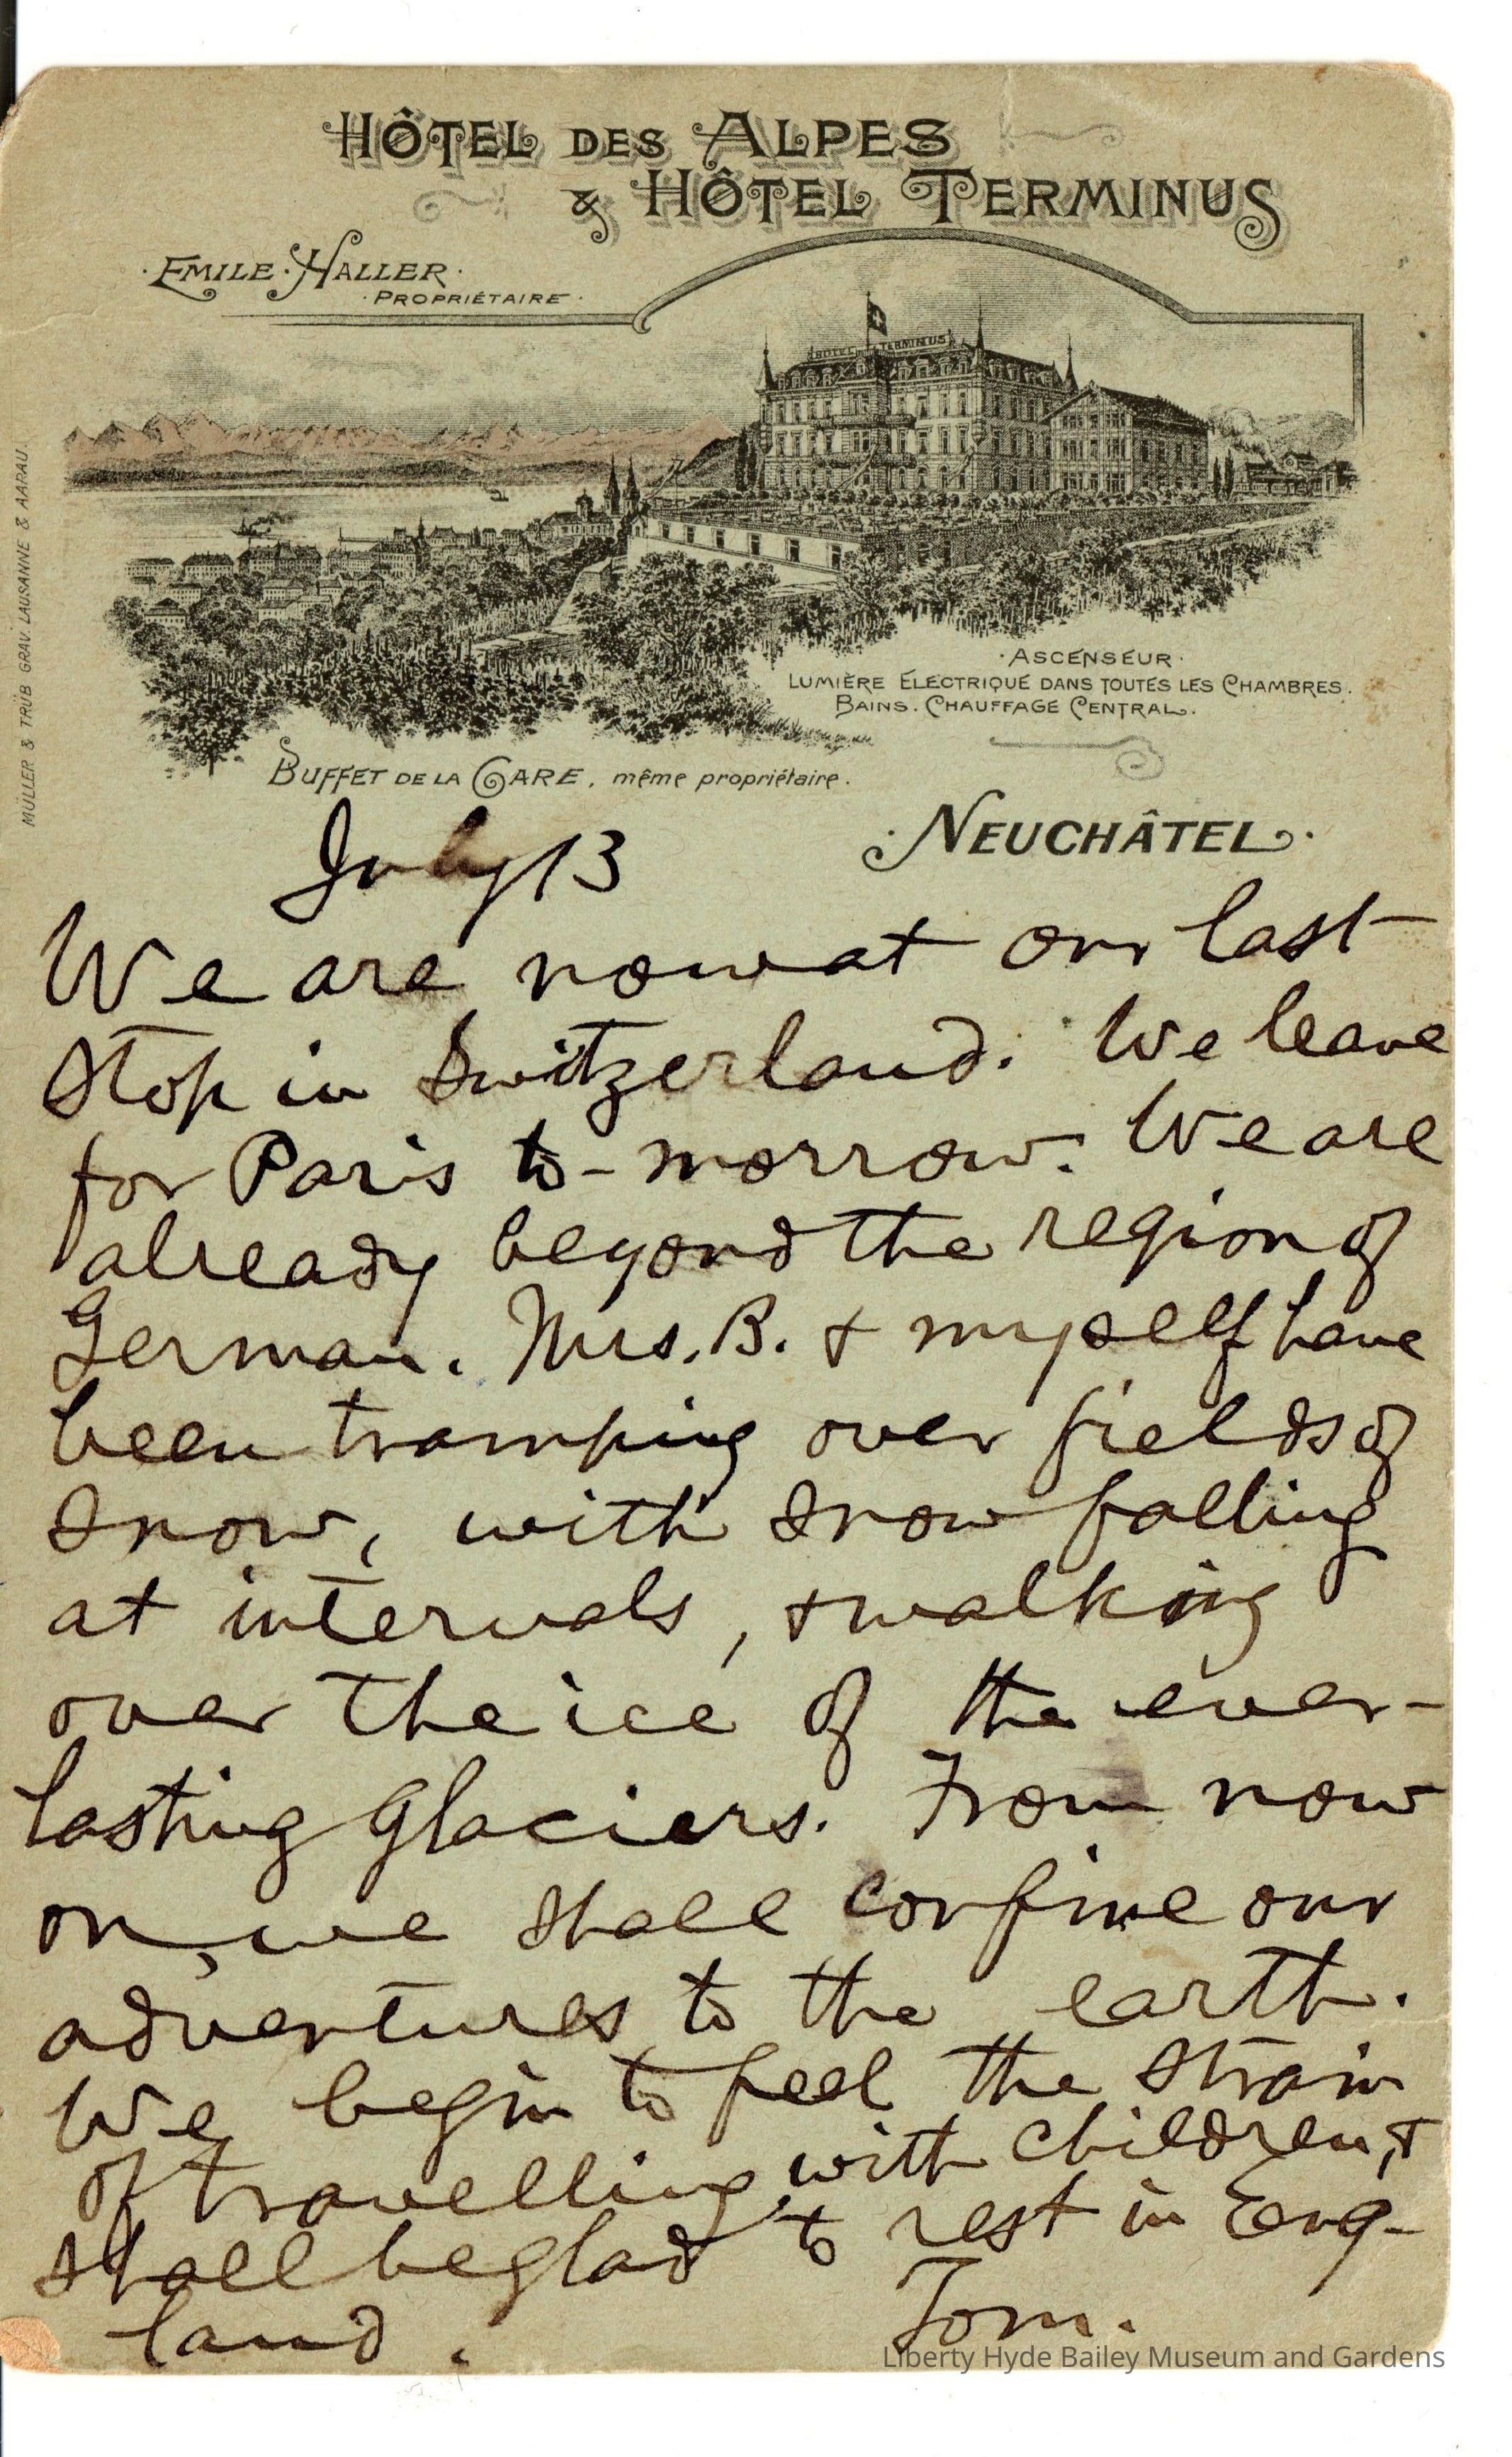 HÔTEL DES ALPES
& HÔTEL TERMINUS
· EMILE · HALLER ·
· PROPRIÉTAIRE ·
HOTEL TERMINUS
MÜLLER & TRÜB GRAV. LAUSANNE & AARAU.
· ASCENSEUR ·
LUMIÈRE ELECTRIQUE DANS TOUTES LES CHAMBRES.
BAINS. CHAUFFAGE CENTRAL.
BUFFET DE LA GARE, même propriétaire.
· NEUCHÂTEL ·
July 13
We are now at our last
stop in Switzerland. We leave
for Paris to-morrow. We are
already beyond the region of
German. Mrs. B. + myself have
been tramping over fields of
snow, with snow falling
at intervals, + walking
over the ice of the ever-
lasting glaciers. From now
on, we shall confine our
adventures to the earth.
We begin to feel the strain
of travelling, with children, +
shall be glad to rest in Eng-
land. Tom.
Liberty Hyde Bailey Museum and Gardens